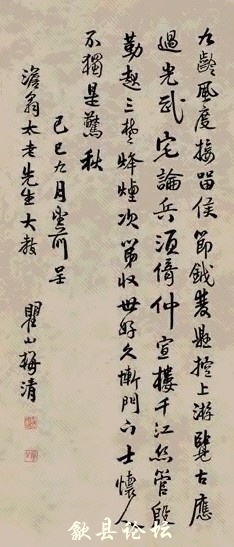 九齡風度接留侯節鉞懸控上游覽古應
過光武宅論兵須倚仲宣樓千江絲管殷
勤三楚烽煙次第收世好久慚門下士懷人
不獨是驚秋
己巳九月望前呈
澹翁太老先生大教
瞿山梅清
歙县论坛